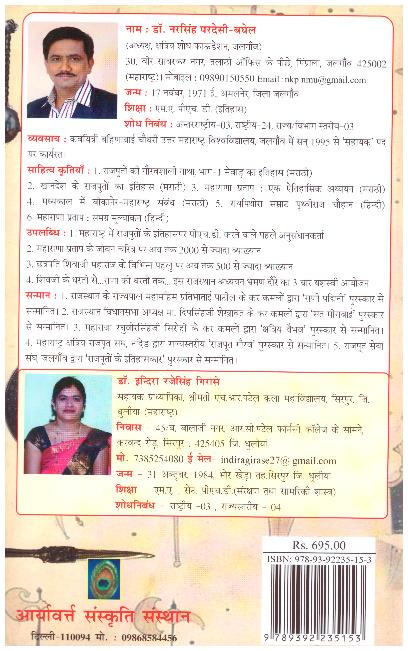 नाम : डॉ. नरसिंह परदेसी-बघेल
(अध्यक्ष, क्षत्रिय शोध फाऊंडेशन, जलगाँव)
30, वीर सावरकर नगर, तलाठी ऑफिस के पीछे, पिंप्राला, जलगाँव 425002
(महाराष्ट्र) मोबाइल : 09890150550 Email :nkp.nmu@gmail.com
जन्म : 17 नवंबर, 1971 ई. अमलनेर, जिला जलगाँव
शिक्षा : एम.ए. पीएच. डी. (इतिहास)
शोध निबंध : अन्तरराष्ट्रीय-03, राष्ट्रीय-24, राज्य/विभाग स्तरीय-03
व्यवसाय : कवयित्री बहिणाबाई चौधरी उत्तर महाराष्ट्र विश्वविद्यालय, जलगाँव में सन् 1995 से 'सहायक' पद
पर कार्यरत।
साहित्य कृतियाँ : 1. राजपूतों की गौरवशाली गाथा, भाग-1 मेवाड़ का इतिहास (मराठी)
2. खानदेश के राजपूतों का इतिहास (मराठी) 3. महाराणा प्रताप : एक ऐतिहासिक अध्ययन (मराठी)
4. मध्यकाल में बीकानेर-महाराष्ट्र संबंध (मराठी) 5. रायपिथौरा सम्राट पृथ्वीराज चौहान (हिन्दी)
6. महाराणा प्रताप : समग्र मूल्यांकन (हिन्दी)
उपलब्धि : 1. महाराष्ट्र में राजपूतों के इतिहासपर पीएच.डी. करने वाले पहले अनुसंधानकर्ता
2. महाराणा प्रताप के जीवन चरित्र पर अब तक 2000 से ज्यादा व्याख्यान
3. छत्रपति शिवाजी महाराज के विभिन्न पहलू पर अब तक 500 से ज्यादा व्याख्यान
4. शिवजी की धरती से... राणा की धरती तक... इस राजस्थान अध्ययन भ्रमण दौरे का 3 बार यशस्वी आयोजन
सन्मान : 1. राजस्थान के राज्यपाल महामहिम प्रतिभाताई पाटील के कर कमलों द्वारा 'राणी पद्मिनी' पुरस्कार से
सन्मानित। 2. राजस्थान विधानसभा अध्यक्ष मा. दिपसिंहजी शेखावत के कर कमलों द्वारा 'संत मीराबाई' पुरस्कार
से सन्मानित। 3. महाराजा रघुवीरसिंहजी सिरोही के कर कमलों द्वारा 'क्षत्रिय वैभव' पुरस्कार से सन्मानित।
4. महाराष्ट्र क्षत्रिय राजपूत संघ, नांदेड द्वारा राज्यस्तरीय 'राजपूत गौरव' पुरस्कार से सन्मानित। 5. राजपूत सेवा
संघ, जलगाँव द्वारा 'राजपूतों के इतिहासकार' पुरस्कार से सन्मानित।
डॉ. इन्दिरा रजेसिंह गिरासे
सहायक प्राध्यापिका, श्रीमती एच.आर.पटेल कला महाविद्यालय, सिरपुर, जि.
धुलीया (महाराष्ट्र)
निवास - 45/ब, बालाजी नगर, आर.सी.पटेल फार्मसी कॉलेज के सामने,
करवन्द रोड़, सिरपुर - 425405 जि. धुलीया
मो. 7385254080 ई मेल- indiragirase27@gmail.com
जन्म - 31 अक्टूबर, 1984, भोर खेड़ा तह.सिरपुर जि. धुलीया
शिक्षा - एम.ए., सेट, पीएच.डी.(संरक्षण तथा सामरिकी शास्त्र)
शोधनिबंध - राष्ट्रीय -03 , राज्यस्तरीय - 04
Rs. 695.00
ISBN: 978-93-92235-15-3
9 789392 235153
आर्यावर्त्त संस्कृति संस्थान
दिल्ली-110094 मो. : 09868584456